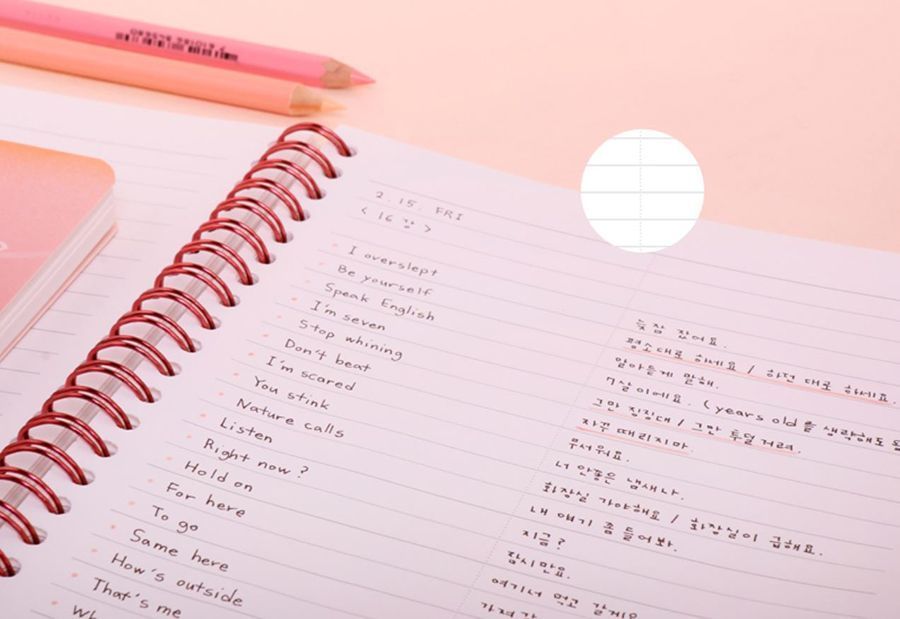 2. 15. FRI
< 16 강 >
I overslept
Be yourself
Speak English
I'm seven
Stop whining
Don't beat
I'm scared
You stink
Nature calls
Listen
Right now?
Hold on
For here
To go
Same here
How's outside
That's me
늦잠 잤어요.
평소대로 하세요 / 하던 대로 하세요.
알아듣게 말해.
7살이에요. (years old를 생략해도 됨
그만 징징대 / 그만 투덜거려.
자꾸 때리지마.
무서워요.
너 안좋은 냄새나.
화장실 가야해요 / 화장실이 급해요.
내 얘기 좀 들어봐.
지금?
잠시만요.
여기서 먹고 갈게요